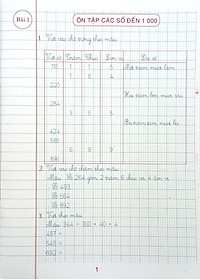 Bài 1
ÔN TẬP CÁC SỐ ĐẾN 1 000
1. Viết vào chỗ trống theo mẫu.
Viết số Trăm Chục Đơn vị Đọc số
115 1 1 5 Một trăm mười lăm
1 8 4
220
Hai trăm bốn mươi sáu
284
3 5 5
Ba trăm tám mươi
424
586
6 9 9
898
2. Viết vào chỗ chấm theo mẫu.
Mẫu: Số 264 gồm 2 trăm 6 chục và 4 đơn vị.
Số 493
Số 564
Số 892
3. Viết theo mẫu.
Mẫu: 344 = 300 + 40 + 4
487 =
545 =
692 =
1